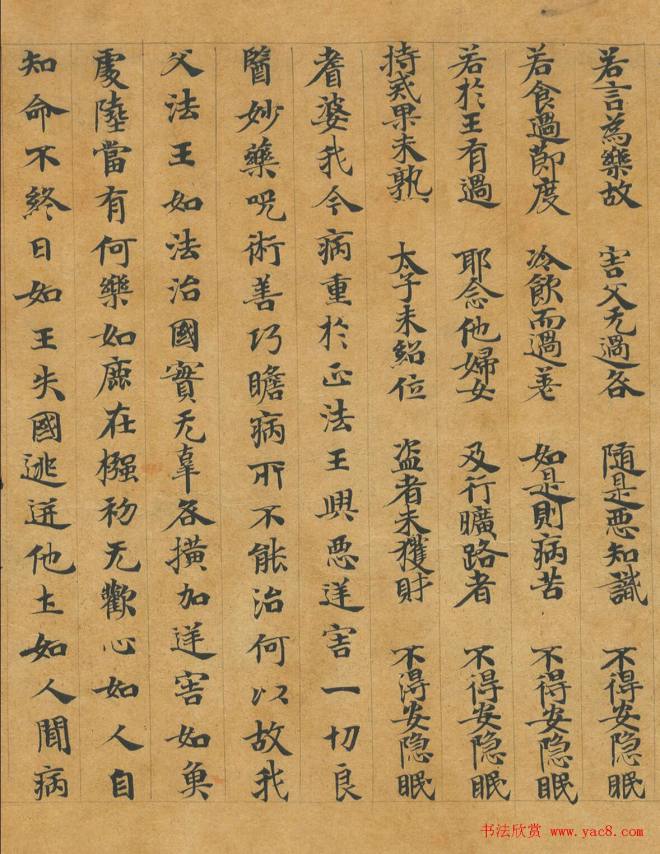 若言為樂故 害父无過各 随是惡知識 不得安隐眠
若食過節度 冷飲而過差 如是則病苦 不得安隐眠
若於王有過 耶念他婦女 及行曠路者 不得安隐眠
持戒果未熟 太子未紹位 盗者未獲財 不得安隐眠
耆婆我今病重於正法王興惡逆害一切良
醫妙藥呪術善巧瞻病所不能治何以故我
父法王如法治國實无辜各横加逆害如魚
處陸當有何樂如鹿在摾初无歡心如人自
知命不終日如王失國逃迸他土如人聞病
书法欣赏 www.yac8.com